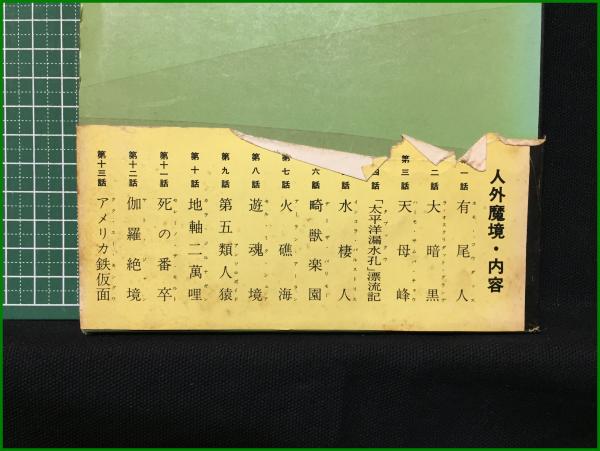 人外魔境・内容
一話 有尾人
二話 大暗黒
第三話 天母峰
四話 「太平洋漏水孔」漂流記
話 水棲人
六話 畸獣楽園
第七話 火礁海
第八話 遊魂境
第九話 第五類人猿
第十話 地軸二萬哩
第十一話 死の番卒
第十二話 伽羅絶境
第十三話 アメリカ鉄仮面